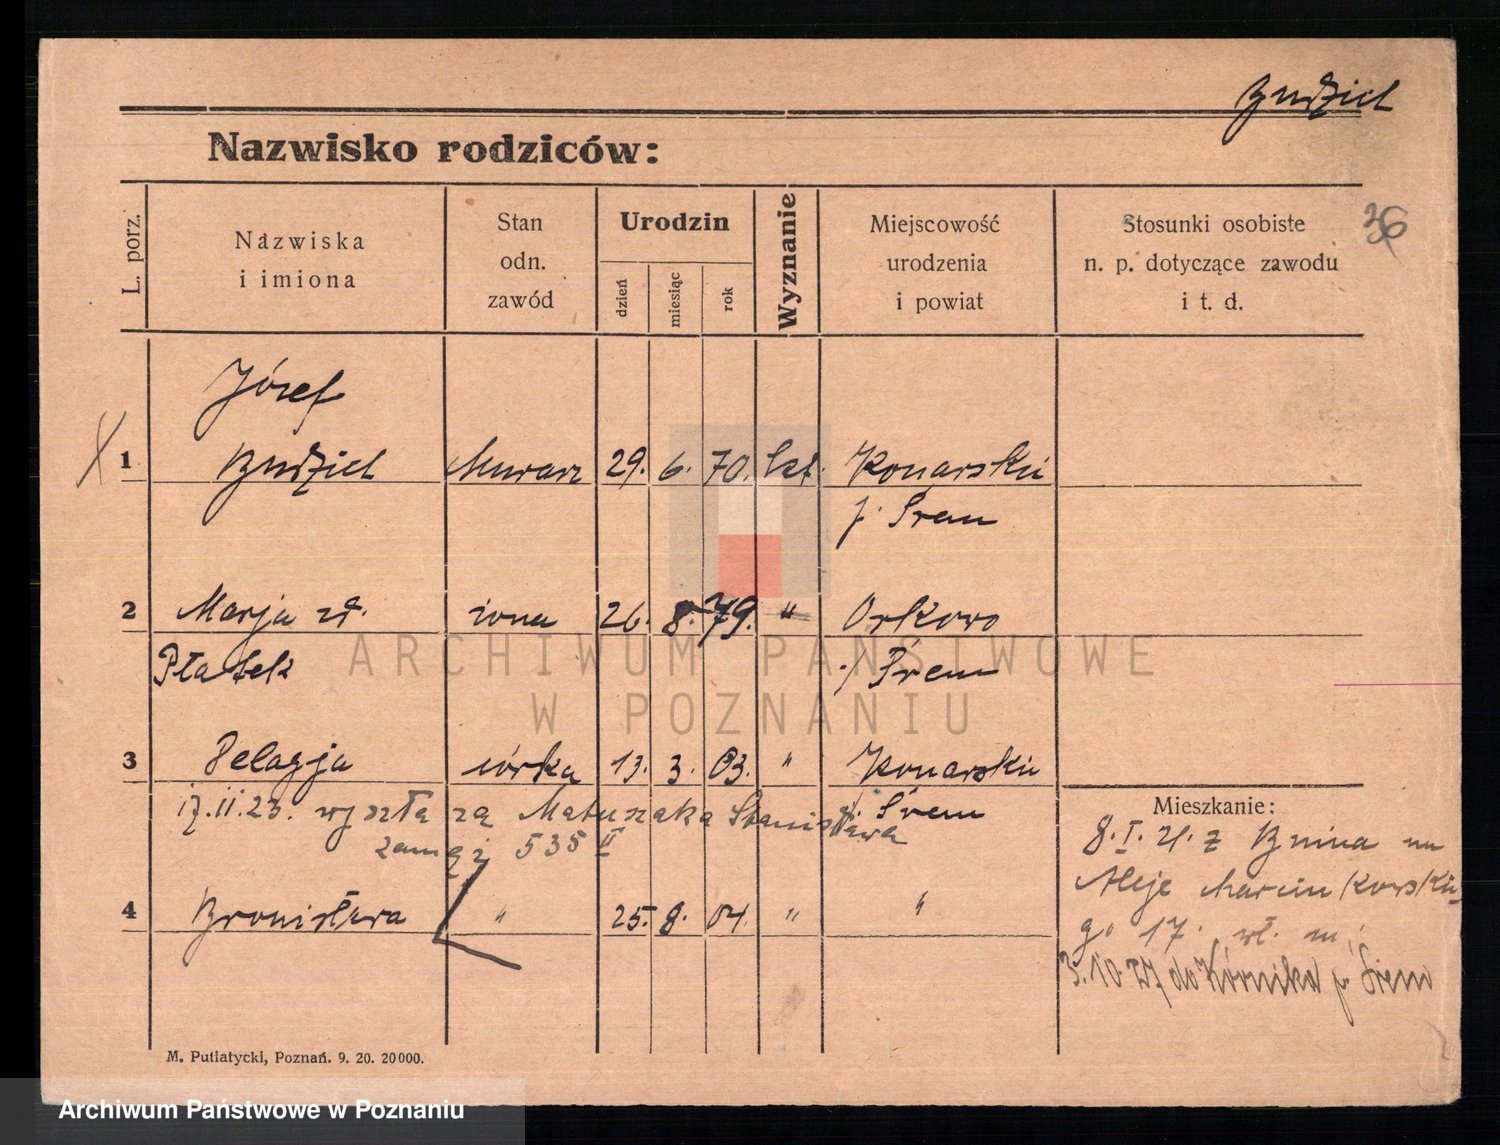 Budzich
Nazwisko rodziców:
L. porz.
Nazwiska
i imiona
Stan
odn.
zawód
Urodzin
dzień
miesiąc
rok
Wyznanie
Miejscowość
urodzenia
i powiat
Stosunki osobiste
n. p. dotyczące zawodu
i t. d.
36
Józef
1 Budzich Murarz 29. 6. 70. kat. Konarskie
p. Śrem
2 Marja zd. żona 26. 8. 79. " Orkowo
Płatek p. Śrem
3 Pelagja córka 13. 3. 03. " Konarskie
p. Śrem
17.11.23. wyszła za Matuszaka Stanisława
zamąż 535 II
4 Bronisława " 25. 8. 04. " "
Mieszkanie:
8. I. 21. z Bnina na
Aleje Marcinkowskie
go 17. wł. m.
3.10.27 do Kórnika p. Śrem
M. Putiatycki, Poznań. 9. 20. 20000.
ARCHIWUM PAŃSTWOWE
W POZNANIU
Archiwum Państwowe w Poznaniu